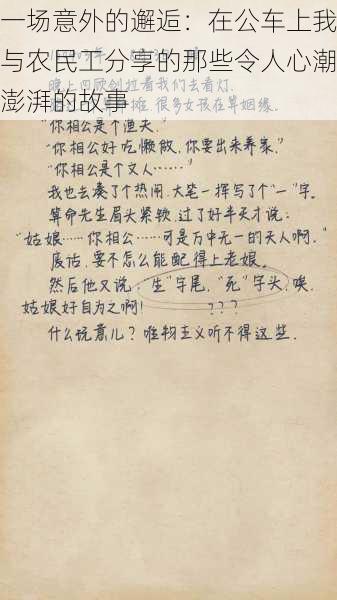 一场意外的邂逅：在公车上我
与农民工分享的那些令人心潮
澎湃的故事
晚上四欧剑拉着我们去看灯.
摊 很多女孩在算姻缘.
“你相公是个渔夫.”
“你相公好吃懒做,你要出来养家.”
“你相公是个文人……”
我也去凑了个热闹.大笔一挥写了个“一”字.
算命先生眉头紧锁,过了好半天才说：
“姑娘……你相公……可是万中无一的天人啊.”
废话,要不怎么能配得上老娘.
然后他又说：“生”字尾,“死”字头,唉,
姑娘好自为之啊! ???
什么玩意儿？唯物主义听不得这些.